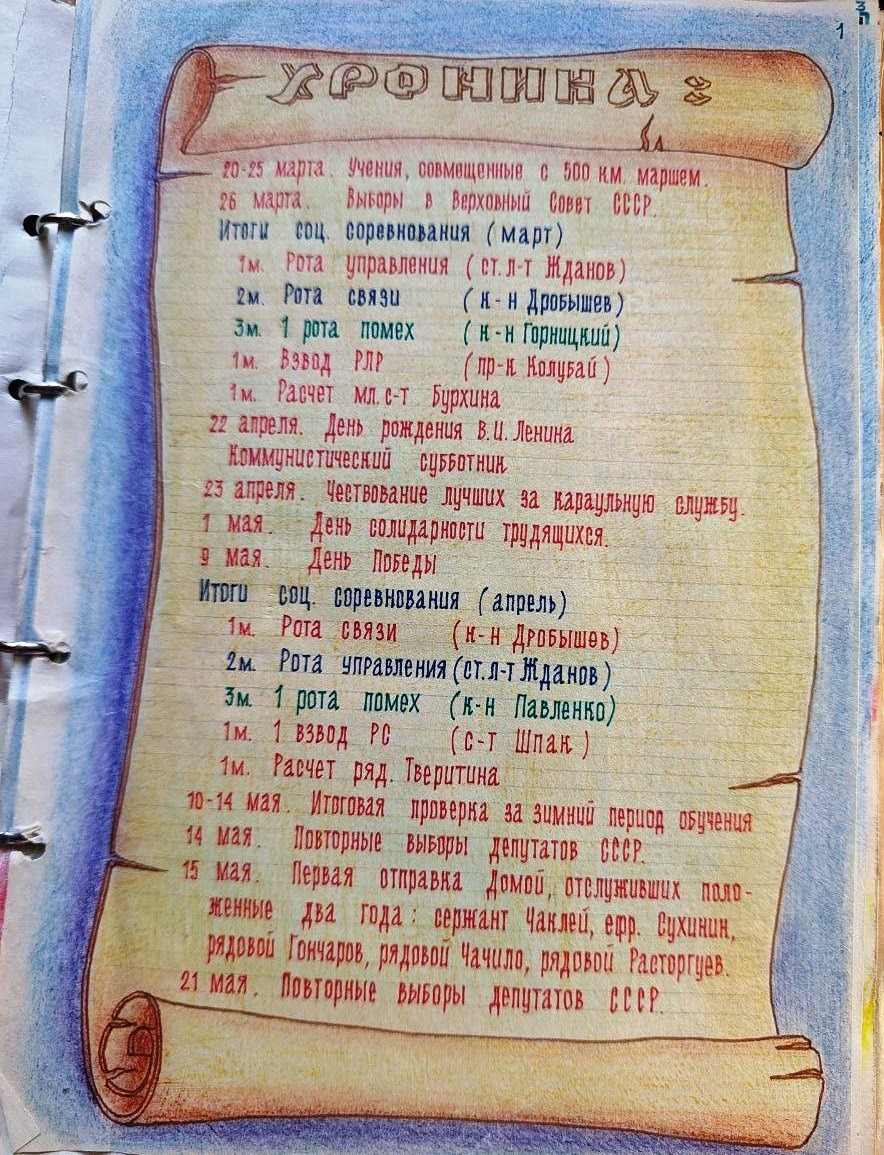 1
ХРОНИКА:
20-25 марта. Учения, совмещенные с 500 км. маршем.
26 марта. Выборы в Верховный Совет СССР.
Итоги соц. соревнования (март)
1м. Рота управления (ст.л-т Жданов)
2м. Рота связи (к-н Дробышев)
3м. 1 рота помех (к-н Горницкий)
1м. Взвод РЛР (пр-к Колубай)
1м. Расчет мл.с-т Бурхина
22 апреля. День рождения В.И.Ленина
Коммунистический субботник
23 апреля. Чествование лучших за караульную службу.
1 мая. День солидарности трудящихся.
9 мая. День Победы
Итоги соц. соревнования (апрель)
1м. Рота связи (к-н Дробышев)
2м. Рота управления (ст.л-т Жданов)
3м. 1 рота помех (к-н Павленко)
1м. 1 взвод РС (с-т Шпак)
1м. Расчет ряд. Тверитина
10-14 мая. Итоговая проверка за зимний период обучения
14 мая. Повторные выборы депутатов СССР.
15 мая. Первая отправка домой, отслуживших поло-
женные два года: сержант Чаклей, ефр. Сухинин,
рядовой Гончаров, рядовой Чачило, рядовой Расторгуев.
21 мая. Повторные выборы депутатов СССР.